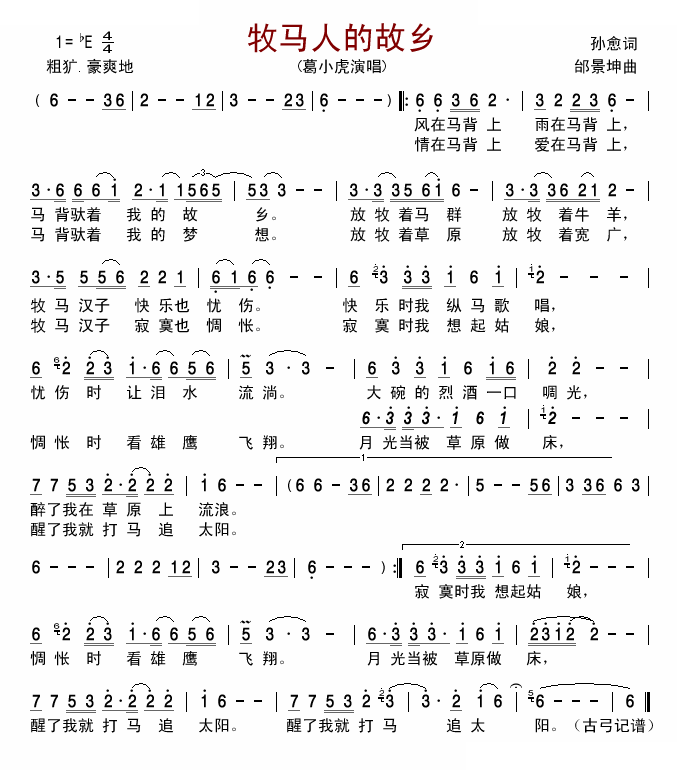 牧马人的故乡
1=♭E 4/4
孙愈词
粗犷.豪爽地
(葛小虎演唱)
邰景坤曲
(6 - - 36 | 2 - - 12 | 3 - - 23 | 6 - - - ) |: 6 6 36 2· | 3 2 23 6 - |
风在马背 上 雨在马背 上,
情在马背 上 爱在马背 上,
3·6 6 61 2·1 1565 | 53 3 - - | 3·3 35 61 6 - | 3·3 36 21 2 - |
马 背驮着 我 的 故 乡。 放 牧 着马 群 放 牧 着牛 羊,
马 背驮着 我 的 梦 想。 放 牧 着草 原 放 牧 着宽 广,
3·5 556 2 2 1 | 6 1 6 6 - - | 6 3 33 1 6 1 | 2 - - - |
牧 马 汉子 快 乐也 忧 伤。 快 乐 时我 纵 马 歌 唱,
牧 马 汉子 寂 寞也 惆 怅。 寂 寞 时我 想 起 姑 娘,
6 2 23 1·6 656 | 5 3·3 - | 6 3 3 1 6 16 | 2 2 - - |
忧 伤 时 让 泪 水 流 淌。 大 碗 的 烈 酒 一口 啁 光,
6·3 33·1 6 1 | 2 - - - |
惆 怅 时 看 雄 鹰 飞 翔。 月 光当被 草 原 做 床,
7 7 53 2·2 2 2 | 1 6 - - | (6 6 - 36 | 2 2 2 2· | 5 - - 56 | 3 36 6 3 |
1
醉了我在 草 原 上 流浪。
醒了我就 打 马 追 太阳。
6 - - - | 2 2 2 12 | 3 - - 23 | 6 - - - ) :| 6 3 33 1 6 1 | 2 - - - |
2
寂 寞时我 想起姑 娘,
6 2 23 1·6 656 | 5 3·3 - | 6·3 33·1 6 1 | 2312 2 - - |
惆 怅 时 看 雄 鹰 飞 翔。 月 光当被 草原做 床,
7 7 53 2·2 2 2 | 1 6 - - | 7 7 53 2 2 3 | 3·2 1 6 | 6 - - - | 6 - ‖
醒了我就 打 马 追 太阳。 醒了我就 打 马 追 太 阳。(古弓记谱)